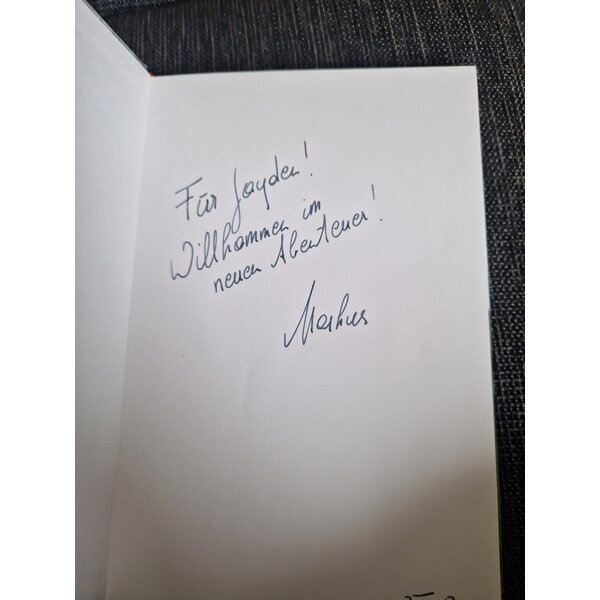 Für Jayden!
Willkommen im
neuen Abenteuer!
Markus